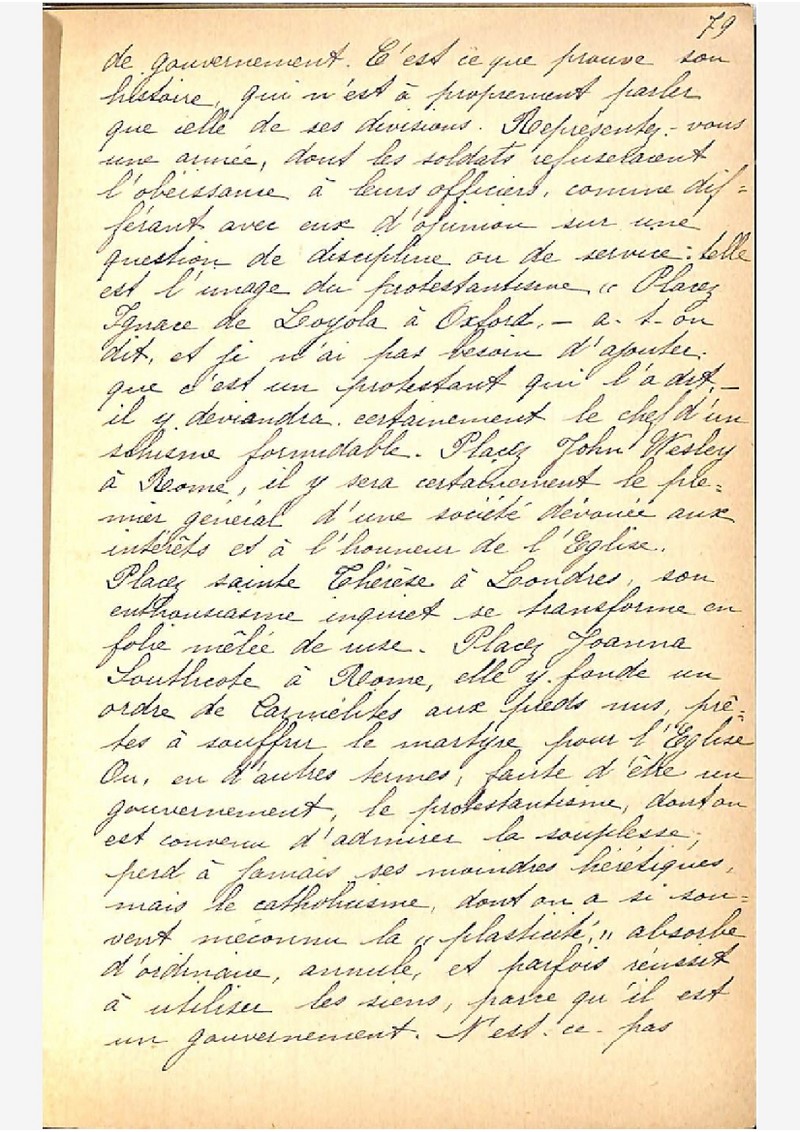 79
de gouvernement. C'est ce que prouve son
histoire, qui n'est à proprement parler
que celle de ses divisions. Représentez-vous
une armée, dont les soldats refuseraient
l'obéissance à leurs officiers, comme dif=
férant avec eux d'opinion sur une
question de discipline ou de service : telle
est l'image du protestantisme „ Placez
Ignace de Loyola à Oxford, – a-t-on
dit, et je n'ai pas besoin d'ajouter
que c'est un protestant qui l'a dit, –
il y deviendra certainement le chef d'un
schisme formidable. Placez John Wesley
à Rome, il y sera certainement le pre=
mier général d'une société dévouée aux
intérêts et à l'honneur de l'Eglise.
Placez sainte Thérèse à Londres, son
enthousiasme inquiet se transforme en
folie mêlée de ruse. Placez Joanna
Southcote à Rome, elle y fonde un
ordre de Carmélites aux pieds nus, prê=
tes à souffrir le martyre pour l'Eglise
Ou, en d'autres termes, faute d'être un
gouvernement, le protestantisme, dont on
est convenu d'admirer la souplesse,
perd à jamais ses moindres hérétiques,
mais le catholicisme, dont on a si sou=
vent méconnu la „ plasticité, „ absorbe
d'ordinaire, annule, et parfois réussit
à utiliser les siens, parce qu'il est
un gouvernement. N'est-ce-pas